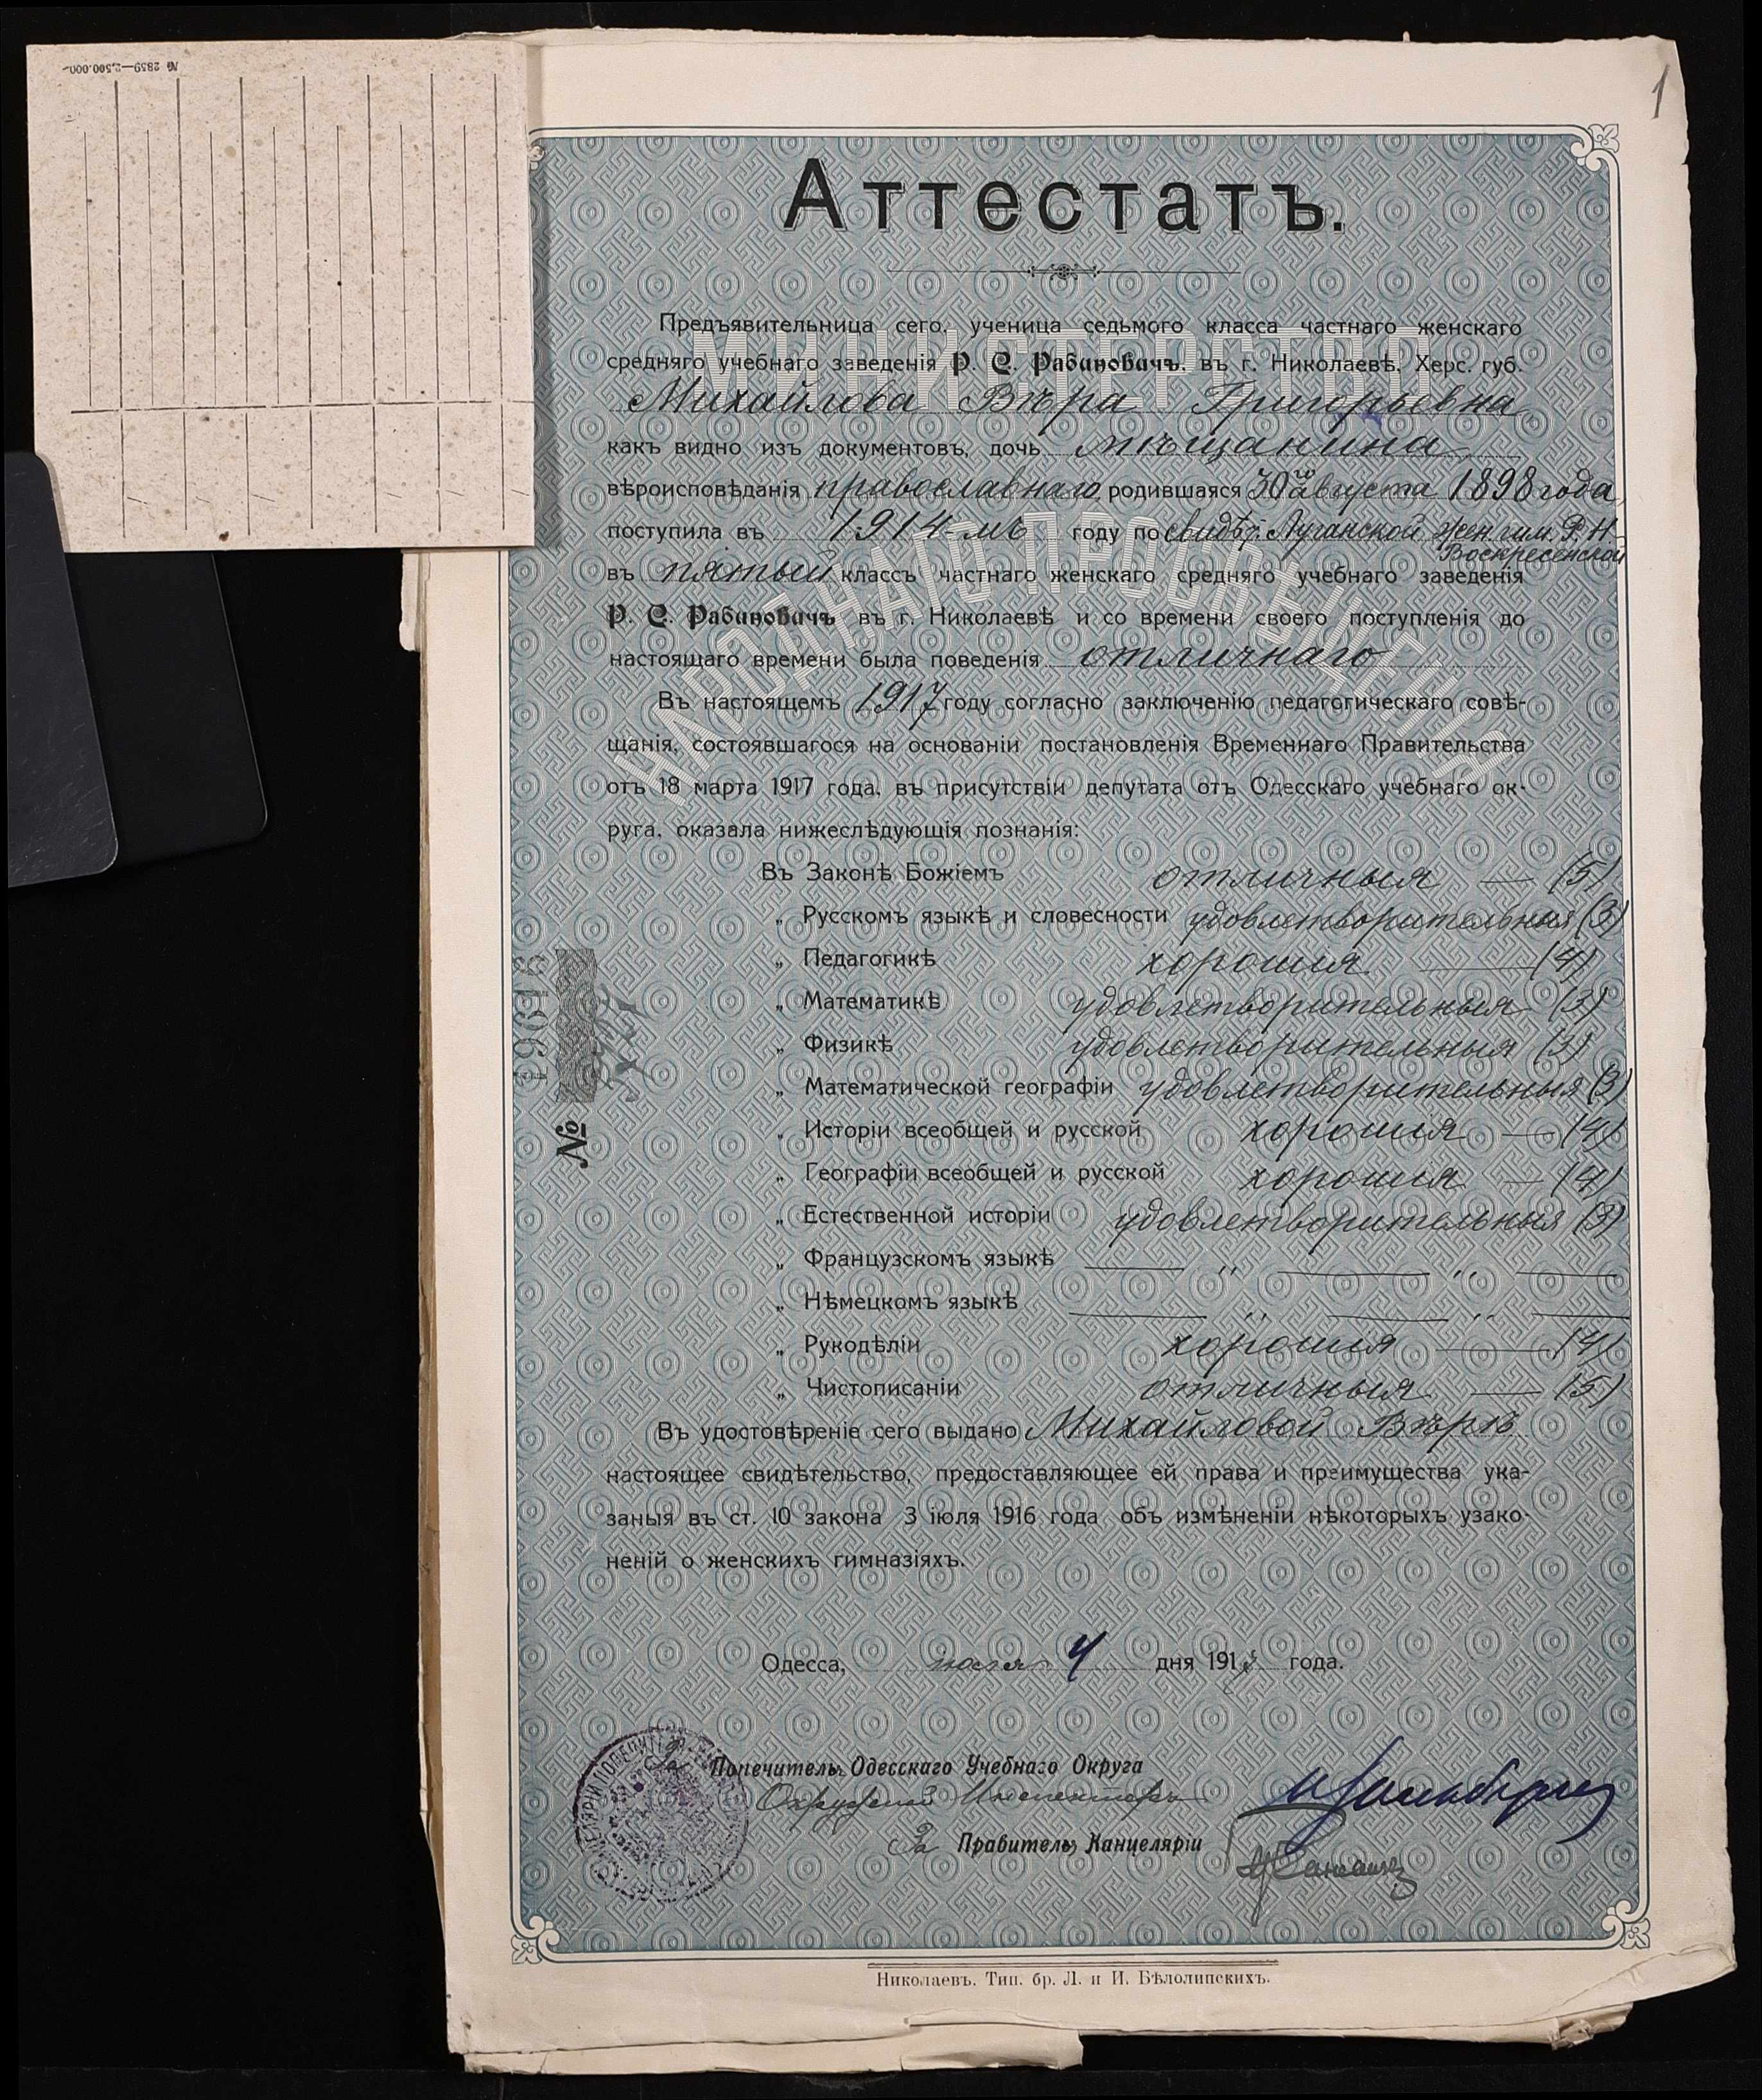 № 2859—2,500.000.
1
Аттестатъ.
МИНИСТЕРСТВО
НАРОДНАГО ПРОСВѢЩЕНІЯ
Предъявительница сего, ученица седьмого класса частнаго женскаго
средняго учебнаго заведенія Р. С. Рабиновичъ, въ г. Николаевѣ, Херс. губ.
Михайлова Вѣра Григорьевна
какъ видно изъ документовъ, дочь мѣщанина
вѣроисповѣданія православнаго родившаяся 30го августа 1898 года,
поступила въ 1914-мъ году по свидѣт. Луганской жен. гим. Р. Н.
Воскресенской
въ пятый классъ частнаго женскаго средняго учебнаго заведенія
Р. С. Рабиновичъ въ г. Николаевѣ и со времени своего поступленія до
настоящаго времени была поведенія отличнаго
Въ настоящемъ 1917 году согласно заключенію педагогическаго совѣ-
щанія, состоявшагося на основаніи постановленія Временнаго Правительства
отъ 18 марта 1917 года, въ присутствіи депутата отъ Одесскаго учебнаго ок-
руга, оказала нижеслѣдующія познанія:
Въ Законѣ Божіемъ отличныя — (5)
„ Русскомъ языкѣ и словесности удовлетворительныя (3)
„ Педагогикѣ хорошія — (4)
„ Математикѣ удовлетворительныя (3)
„ Физикѣ удовлетворительныя (3)
„ Математической географіи удовлетворительныя (3)
„ Исторіи всеобщей и русской хорошія — (4)
„ Географіи всеобщей и русской хорошія — (4)
„ Естественной исторіи удовлетворительныя (3)
„ Французскомъ языкѣ — „ — „ —
„ Нѣмецкомъ языкѣ — „ — „ —
„ Рукодѣліи хорошія — (4)
„ Чистописаніи отличныя — (5)
Въ удостовѣреніе сего выдано Михайловой Вѣрѣ
настоящее свидѣтельство, предоставляющее ей права и преимущества ука-
заныя въ ст. 10 закона 3 іюля 1916 года объ измѣненіи нѣкоторыхъ узако-
неній о женскихъ гимназіяхъ.
№ 19616
Одесса, іюля 4 дня 1917 года.
За Попечитель Одесскаго Учебнаго Округа
Окружной Инспекторъ
За Правитель Канцеляріи
Николаевъ. Тип. бр. Л. и И. Бѣлолипскихъ.